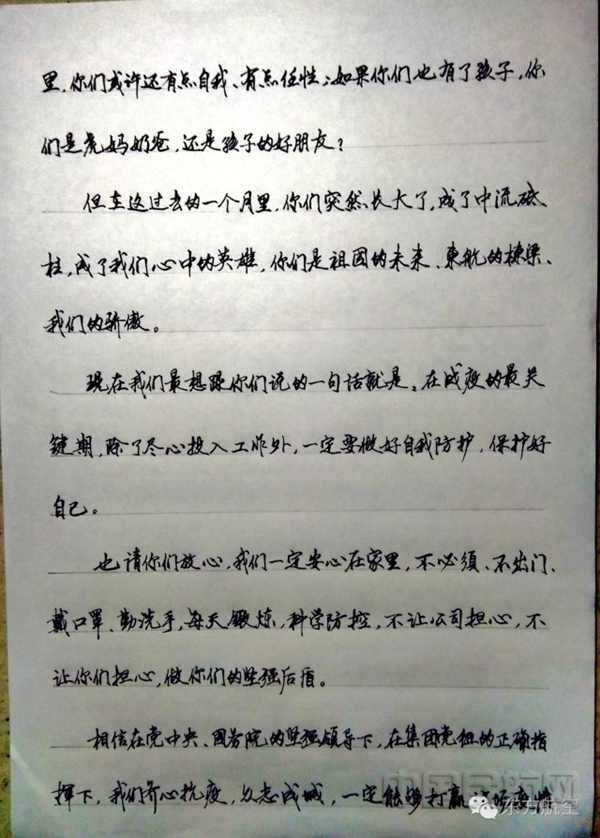 里,你们或许还有点自我、有点任性;如果你们也有了孩子,你
们是虎妈奶爸,还是孩子的好朋友?
但在这过去的一个月里,你们突然长大了,成了中流砥
柱,成了我们心中的英雄,你们是祖国的未来、东航的栋梁、
我们的骄傲。
现在我们最想跟你们说的一句话就是:在战疫的最关
键期,除了尽心投入工作外,一定要做好自我防护,保护好
自己。
也请你们放心,我们一定安心在家里,不必须、不出门、
戴口罩、勤洗手,每天锻炼,科学防控,不让公司担心,不
让你们担心,做你们的坚强后盾。
相信在党中央、国务院的坚强领导下,在集团党组的正确指
挥下,我们齐心抗疫,众志成城,一定能够打赢这场疫情
中国民航网
东方航空